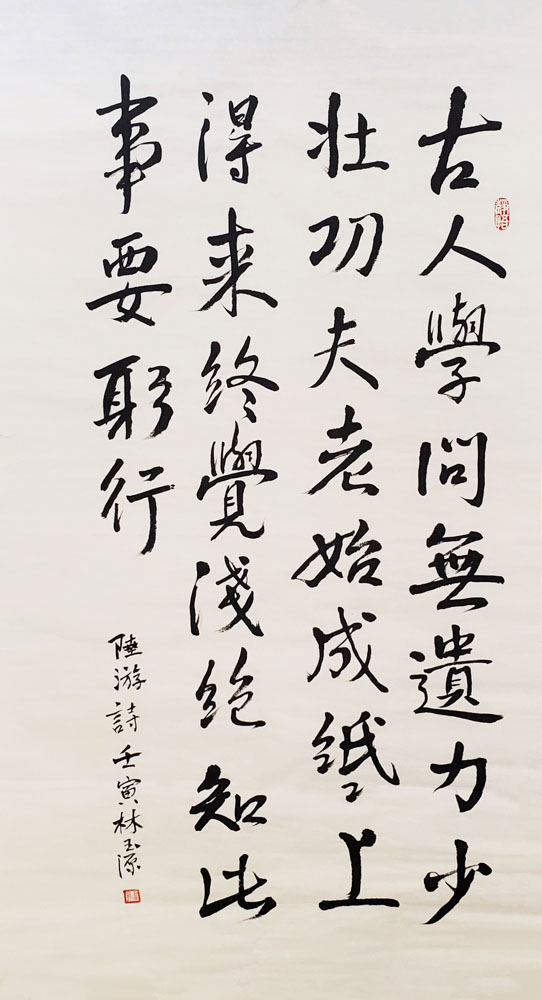 古人學問無遺力少
壯功夫老始成紙上
得来終覺淺絶知此
事要躬行
陸游詩壬寅林玉源